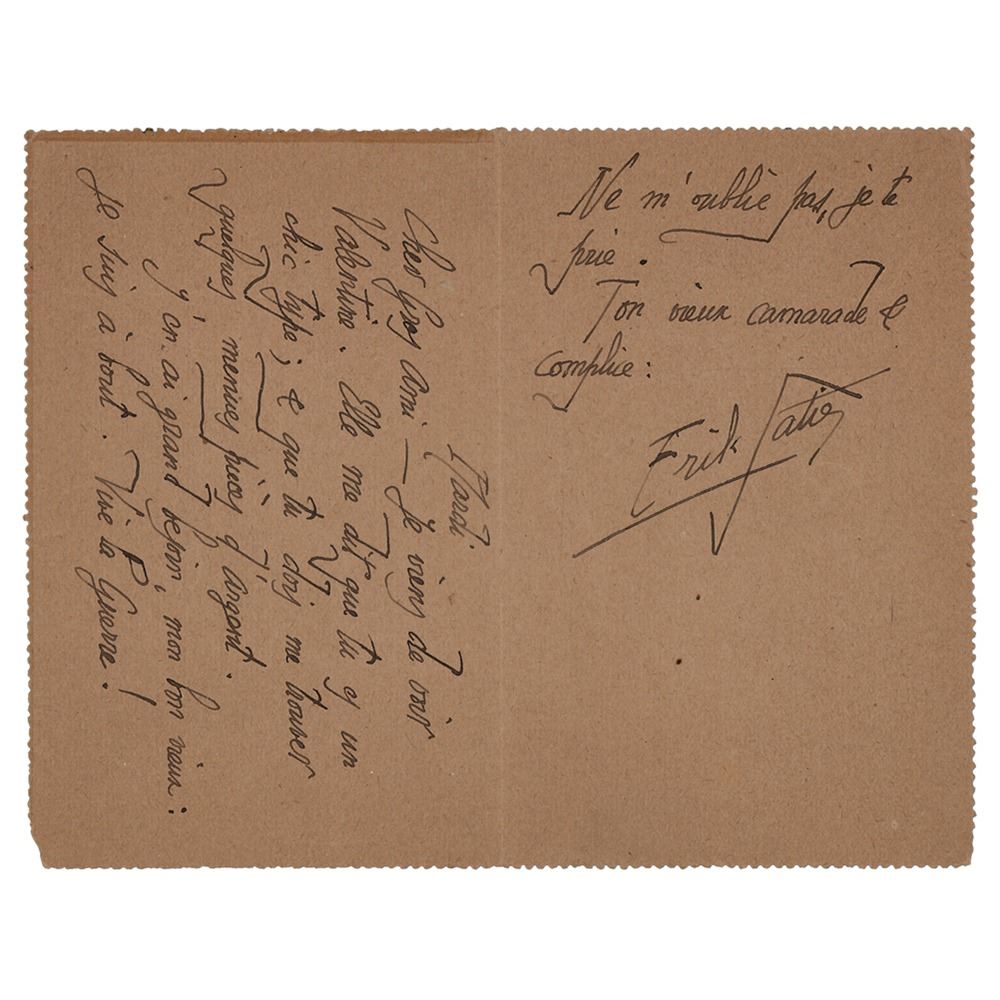 Mardi
Cher Gros Ami — Je viens de voir
Valentine. Elle me dit que tu es un
chic type ; & que tu dois me trouver
quelques menues pièces d'argent.
J'en ai grand besoin, mon bon vieux :
Je suis à bout. Vive la Guerre !
Ne m'oublie pas, je te
prie.
Ton vieux camarade &
complice :
Erik Satie